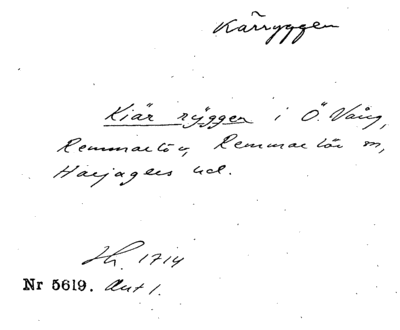 Kärryggen
Kiär rÿggen i Ö. Vång,
Remmarlöv, Remmarlöv sn,
Harjagers hd.
Hh. 1714
Nr 5619. Akt 1.